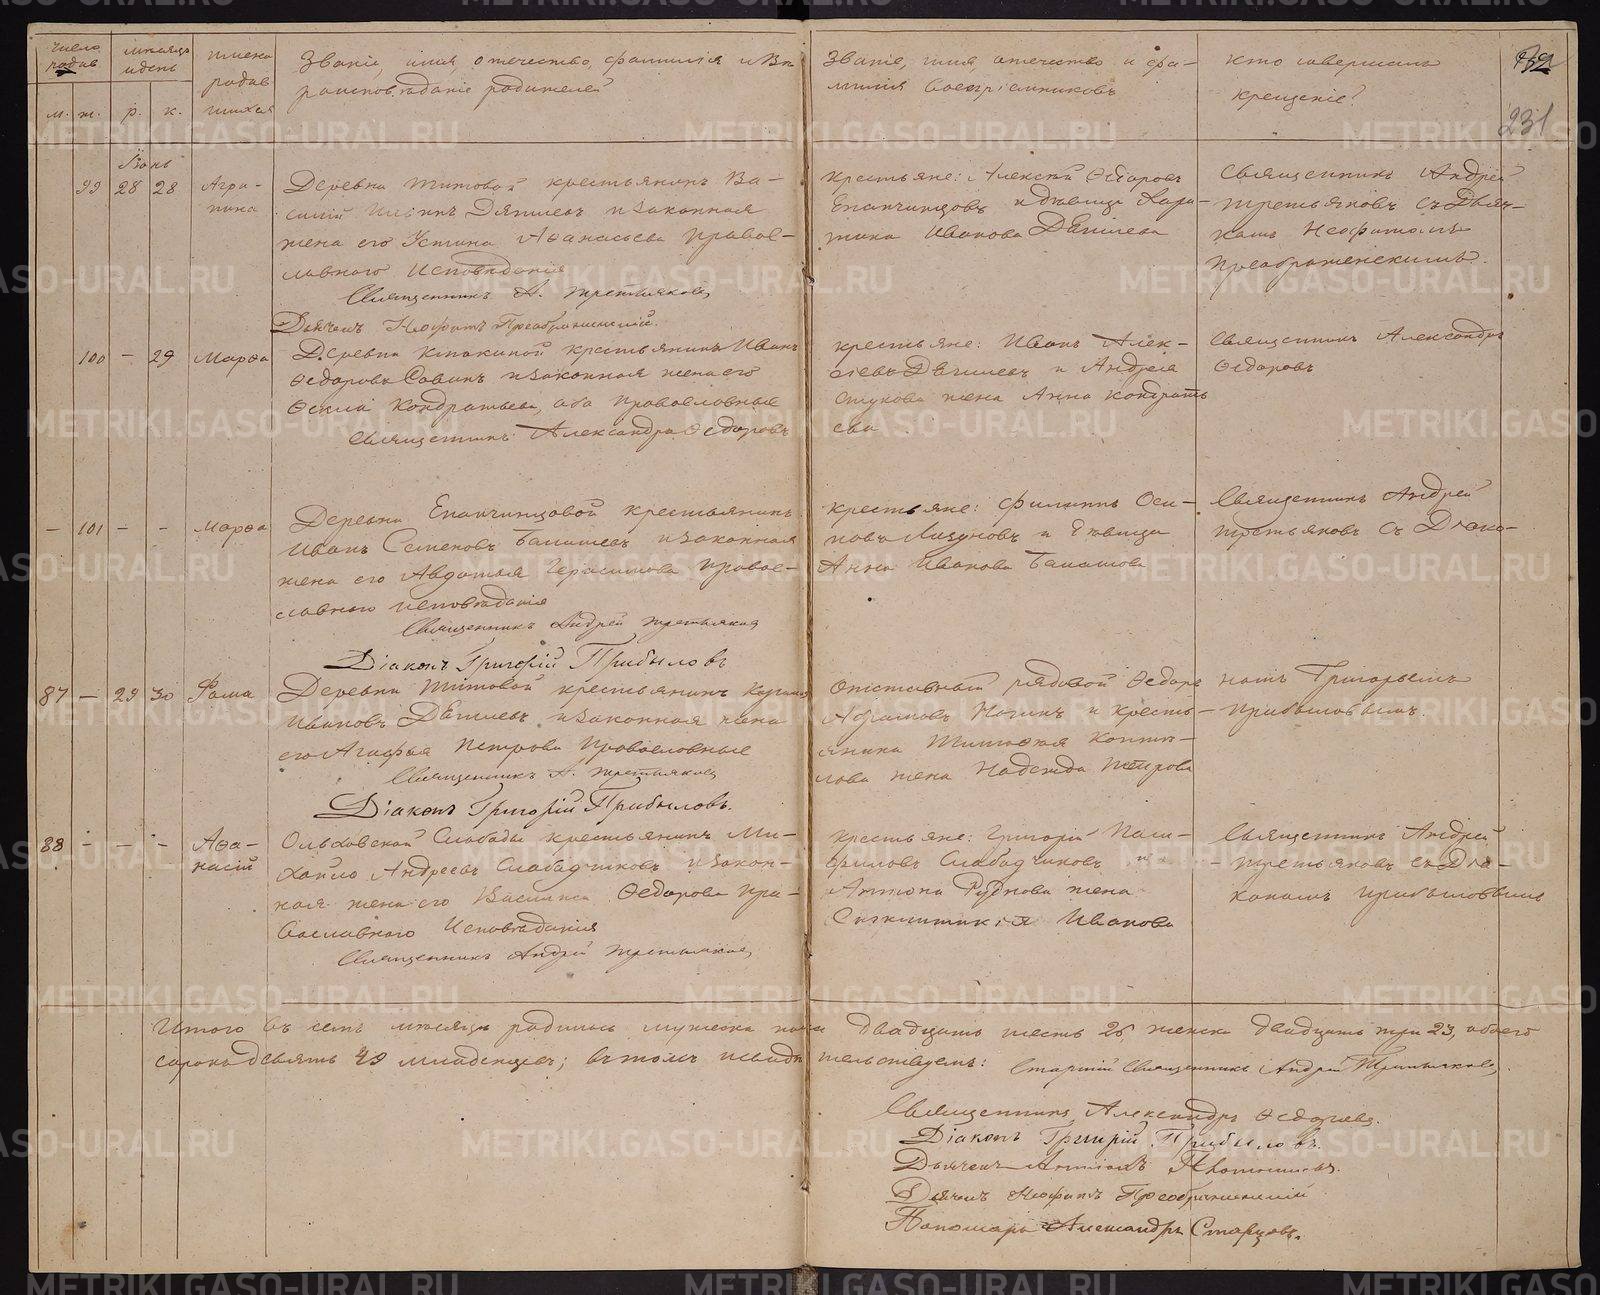 Число родив
мѣсяцъ и день
имена родив шихся
Званіе, имя, отечество, фамилія и Вѣ
роисповѣданіе родителей
Званіе, имя, отечество и фа-
милія Воспріемниковъ
кто совершалъ
крещеніе?
231
м. ж. р. к.
Іюнь
99 28 28 Агри-
пина
Деревни Титовой крестьянинъ Ва-
силій Ильинъ и законная
жена его Устина Аѳанасьева Правос-
лавнаго Исповѣданія
Священникъ А. Третьяковъ
Дьячекъ Неофитъ Преображенскій.
крестьяне: Алексѣй Ѳедоровъ
Епанчинцовъ и дѣвица Хари-
тина Иванова
Священникъ Андрей
Третьяковъ съ Дьяч-
комъ Неофитомъ
Преображенскимъ.
100 — 29 Марѳа
Деревни крестьянинъ Иванъ
Ѳедоровъ Савинъ и законная жена его
Ѳекла Кондратьева, оба православные
Священникъ Александръ Ѳедоровъ
крестьяне: Иванъ Алек-
сѣевъ и Андрея
жена Анна Кондрать
ева
Священникъ Александръ
Ѳедоровъ
— 101 — - Марѳа
Деревни Епанчинцовой крестьянинъ
Иванъ Семеновъ Балашевъ и законная
жена его Авдотья Герасимова Правос-
лавнаго исповѣданія
Священникъ Андрей Третьяковъ
Діаконъ Григорій Прибыловъ
крестьяне: Филиппъ Оси-
повъ Лизуновъ и дѣвица
Анна Иванова Балашова
Священникъ Андрей
Третьяковъ съ Діако-
номъ Григорьемъ
Прибыловымъ.
87 — 29 30 Фома
Деревни Титовой крестьянинъ
Ивановъ и законная жена
его Агафья Петрова Православные
Священникъ А. Третьяковъ
Діаконъ Григорій Прибыловъ.
отставный рядовой Ѳедоръ
Абрамовъ и кресть-
янина
жена Надежда Петрова
88 - — - Аѳа-
насій
Ольховской Слободы крестьянинъ Ми-
хайло Андреевъ Слободчиковъ и закон-
ная жена его Василиса Ѳедорова Пра-
вославнаго Исповѣданія
Священникъ Андрей Третьяковъ
крестьяне: Григорій Пам-
филовъ Слободчиковъ и
Антона Руднова жена
Синклитикія Иванова
Священникъ Андрей
Третьяковъ съ Діа-
кономъ Прибыловымъ
Итого въ семъ мѣсяцѣ родилось мужеска пола двадцать шесть 26, женска двадцать три 23, обоего
сорокъ девять 49 младенцевъ; въ томъ и свидѣтельствуемъ: Старшій Священникъ Андрей Третьяковъ
Священникъ Александръ Ѳедоровъ.
Діаконъ Григорій Прибыловъ.
Дьячекъ
Дьячекъ Неофитъ Преображенскій
Пономарь Александръ Старцовъ.
METRIKI.GASO-URAL.RU